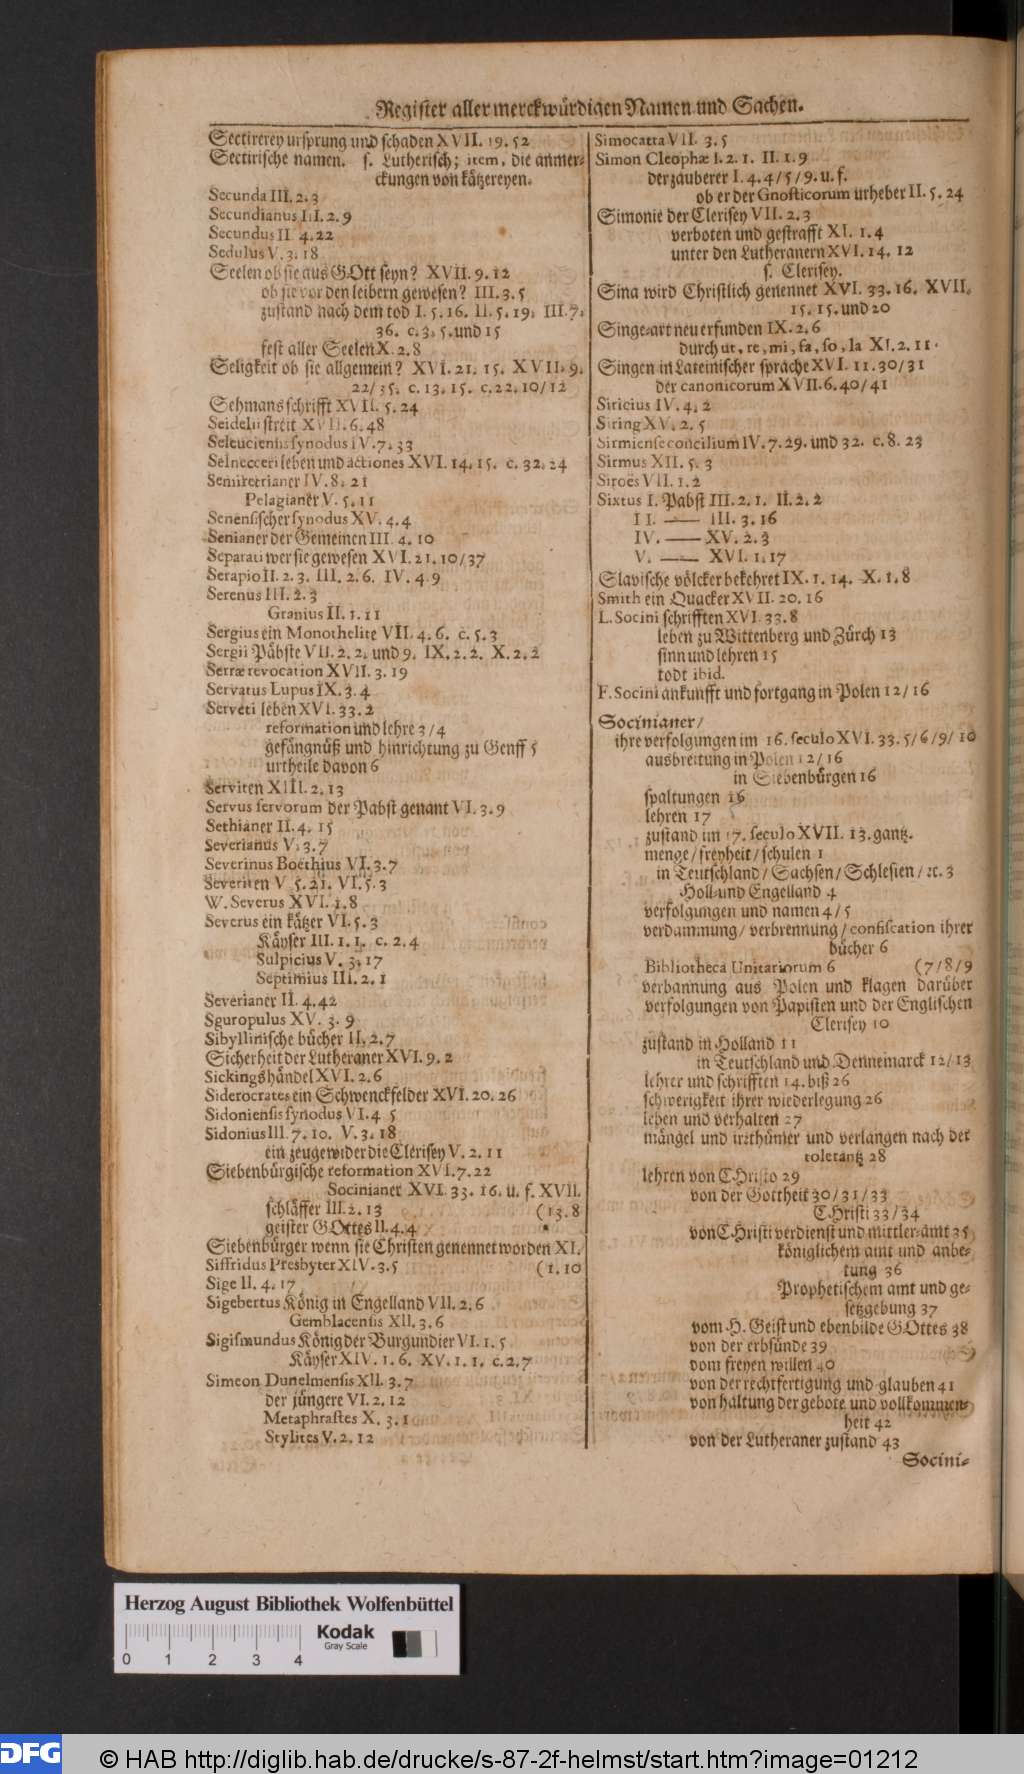 Register aller merckwürdigen Namen und Sachen.
Sectirerey ursprung und schaden XVII. 19. 52
Sectirische namen. s. Lutherisch; item, die anmer-
ckungen von kätzereyen.
Secunda III. 2. 3
Secundianus III. 2. 9
Secundus II. 4. 22
Sedulus V. 3. 18
Seelen ob sie aus GOtt seyn? XVII. 9. 12
ob sie vor den leibern gewesen? III. 3. 5
zustand nach dem tod I. 5. 16. II. 5. 19. III. 7.
36. c. 3. 5. und 15
fest aller Seelen X. 2. 8
Seligkeit ob sie allgemein? XVI. 21. 15. XVII. 9.
22/35. c. 13. 15. c. 22. 10/12
Sehmans schrifft XVII. 5. 24
Seidelii streit XVII. 6. 48
Seleuciensis synodus IV. 7. 33
Selnecceri leben und actiones XVI. 14. 15. c. 32. 24
Semiretrianer IV. 8. 21
Pelagianer V. 5. 11
Senensischer synodus XV. 4. 4
Senianer der Gemeinen III. 4. 10
Separati wer sie gewesen XVI. 21. 10/37
Serapio II. 2. 3. III. 2. 6. IV. 4 9
Serenus III. 2. 3
Granius II. 1. 11
Sergius ein Monothelite VII. 4. 6. c. 5. 3
Sergii Päbste VII. 2. 2. und 9. IX. 2. 2. X. 2. 2
Serræ revocation XVII. 3. 19
Servatus Lupus IX. 3. 4
Serveti leben XVI. 33. 2
reformation und lehre 3/4
gefängnüß und hinrichtung zu Genff 5
urtheile davon 6
Serviten XIII. 2. 13
Servus servorum der Pabst genant VI. 3. 9
Sethianer II. 4. 15
Severianus V. 3. 7
Severinus Boëthius VI. 3. 7
Severiten V 5. 21. VI. 5. 3
W. Severus XVI. 1. 8
Severus ein kätzer VI. 5. 3
Käyser III. 1. 1. c. 2. 4
Sulpicius V. 3. 17
Septimius III. 2. 1
Severianer II. 4. 42
Sguropulus XV. 3. 9
Sibyllinische bücher II. 2. 7
Sicherheit der Lutheraner XVI. 9. 2
Sickings händel XVI. 2. 6
Siderocrates ein Schwenckfelder XVI. 20. 26
Sidoniensis synodus VI. 4 5
Sidonius III. 7. 10. V. 3. 18
ein zeuge wider die Clerisey V. 2. 11
Siebenbürgische reformation XVI. 7. 22
Socinianer XVI. 33. 16. u. f. XVII.
schläffer III. 2. 13 (13. 8
geister GOttes II. 4. 4
Siebenbürger wenn sie Christen genennet worden XI.
Siffridus Presbyter XIV. 3. 5 (1. 10
Sige II. 4. 17
Sigebertus König in Engelland VII. 2. 6
Gemblacensis XII. 3. 6
Sigismundus König der Burgundier VI. 1. 5
Käyser XIV. 1. 6. XV. 1. 1. c. 2. 7
Simeon Dunelmensis XII. 3. 7
der jüngere VI. 2. 12
Metaphrastes X. 3. 1
Stylites V. 2. 12
Simocatta VII. 3. 5
Simon Cleophæ I. 2. 1. II. 1. 9
der zauberer I. 4. 4/5/9. u. f.
ob er der Gnosticorum urheber II. 5. 24
Simonie der Clerisey VII. 2. 3
verboten und gestrafft XI. 1. 4
unter den Lutheranern XVI. 14. 12
s. Clerisey.
Sina wird Christlich genennet XVI. 33. 16. XVII.
15. 15. und 20
Singe-art neu erfunden IX. 2. 6
durch ut, re, mi, fa, so, la XI. 2. 11.
Singen in Lateinischer sprache XVI. 11. 30/31
der canonicorum XVII. 6. 40/41
Siricius IV. 4. 2
Siring XV. 2. 5
Sirmiense concilium IV. 7. 29. und 32. c. 8. 23
Sirmus XII. 5. 3
Siroës VII. 1. 2
Sixtus I. Pabst III. 2. 1. II. 2. 2
II. —— III. 3. 16
IV. —— XV. 2. 3
V. —— XVI. 1. 17
Slavische völcker bekehret IX. 1. 14. X. 1. 8
Smith ein Quacker XVII. 20. 16
L. Socini schrifften XVI. 33. 8
leben zu Wittenberg und Zürch 13
sinn und lehren 15
todt ibid.
F. Socini ankunfft und fortgang in Polen 12/16
Socinianer/
ihre verfolgungen im 16. seculo XVI. 33. 5/6/9/10
ausbreitung in Polen 12/16
in Siebenbürgen 16
spaltungen 16
lehren 17
zustand im 17. seculo XVII. 13. gantz.
menge/freyheit/schulen 1
in Teutschland/Sachsen/Schlesien/ꝛc. 3
Holl-und Engelland 4
verfolgungen und namen 4/5
verdammung/verbrennung/confiscation ihrer
bücher 6
Bibliotheca Unitariorum 6 (7/8/9
verbannung aus Polen und klagen darüber
verfolgungen von Papisten und der Englischen
Clerisey 10
zustand in Holland 11
in Teutschland und Dennemarck 12/13
lehrer und schrifften 14. biß 26
schwerigkeit ihrer wiederlegung 26
leben und verhalten 27
mängel und irrthümer und verlangen nach der
tolerantz 28
lehren von CHristo 29
von der Gottheit 30/31/33
CHristi 33/34
von CHristi verdienst und mittler-amt 35
königlichem amt und anbe-
tung 36
Prophetischem amt und ge-
setzgebung 37
vom H. Geist und ebenbilde GOttes 38
von der erbsünde 39
vom freyen willen 40
von der rechtfertigung und glauben 41
von haltung der gebote und vollkommen-
heit 42
von der Lutheraner zustand 43
Socini-
Herzog August Bibliothek Wolfenbüttel
Kodak
Gray Scale
0 1 2 3 4
DFG
© HAB http://diglib.hab.de/drucke/s-87-2f-helmst/start.htm?image=01212